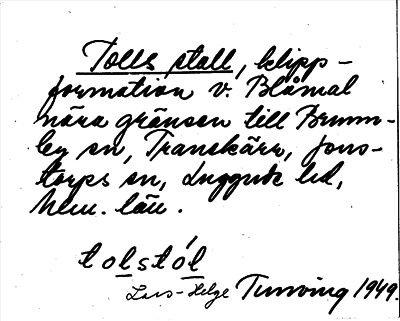 Tolls stall, klipp-
formation v. Blåmal
nära gränsen till Brunn-
by sn, Tranekärr, Jons-
torps sn, Luggude hd,
Malm. län.
tolstól
Lars-Helge Tunving 1949.